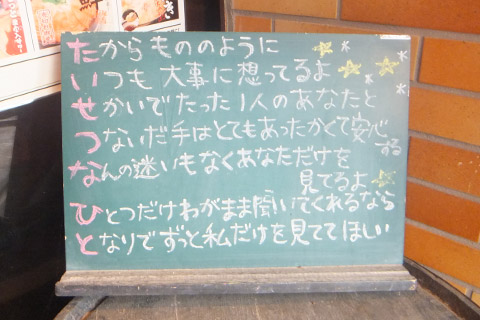 たからもののように
いつも大事に想ってるよ
せかいでたった1人のあなたと
つないだ手はとてもあったかくて安心する
なんの迷いもなくあなただけを
見てるよ
ひとつだけわがまま聞いてくれるなら
となりでずっと私だけを見ててほしい